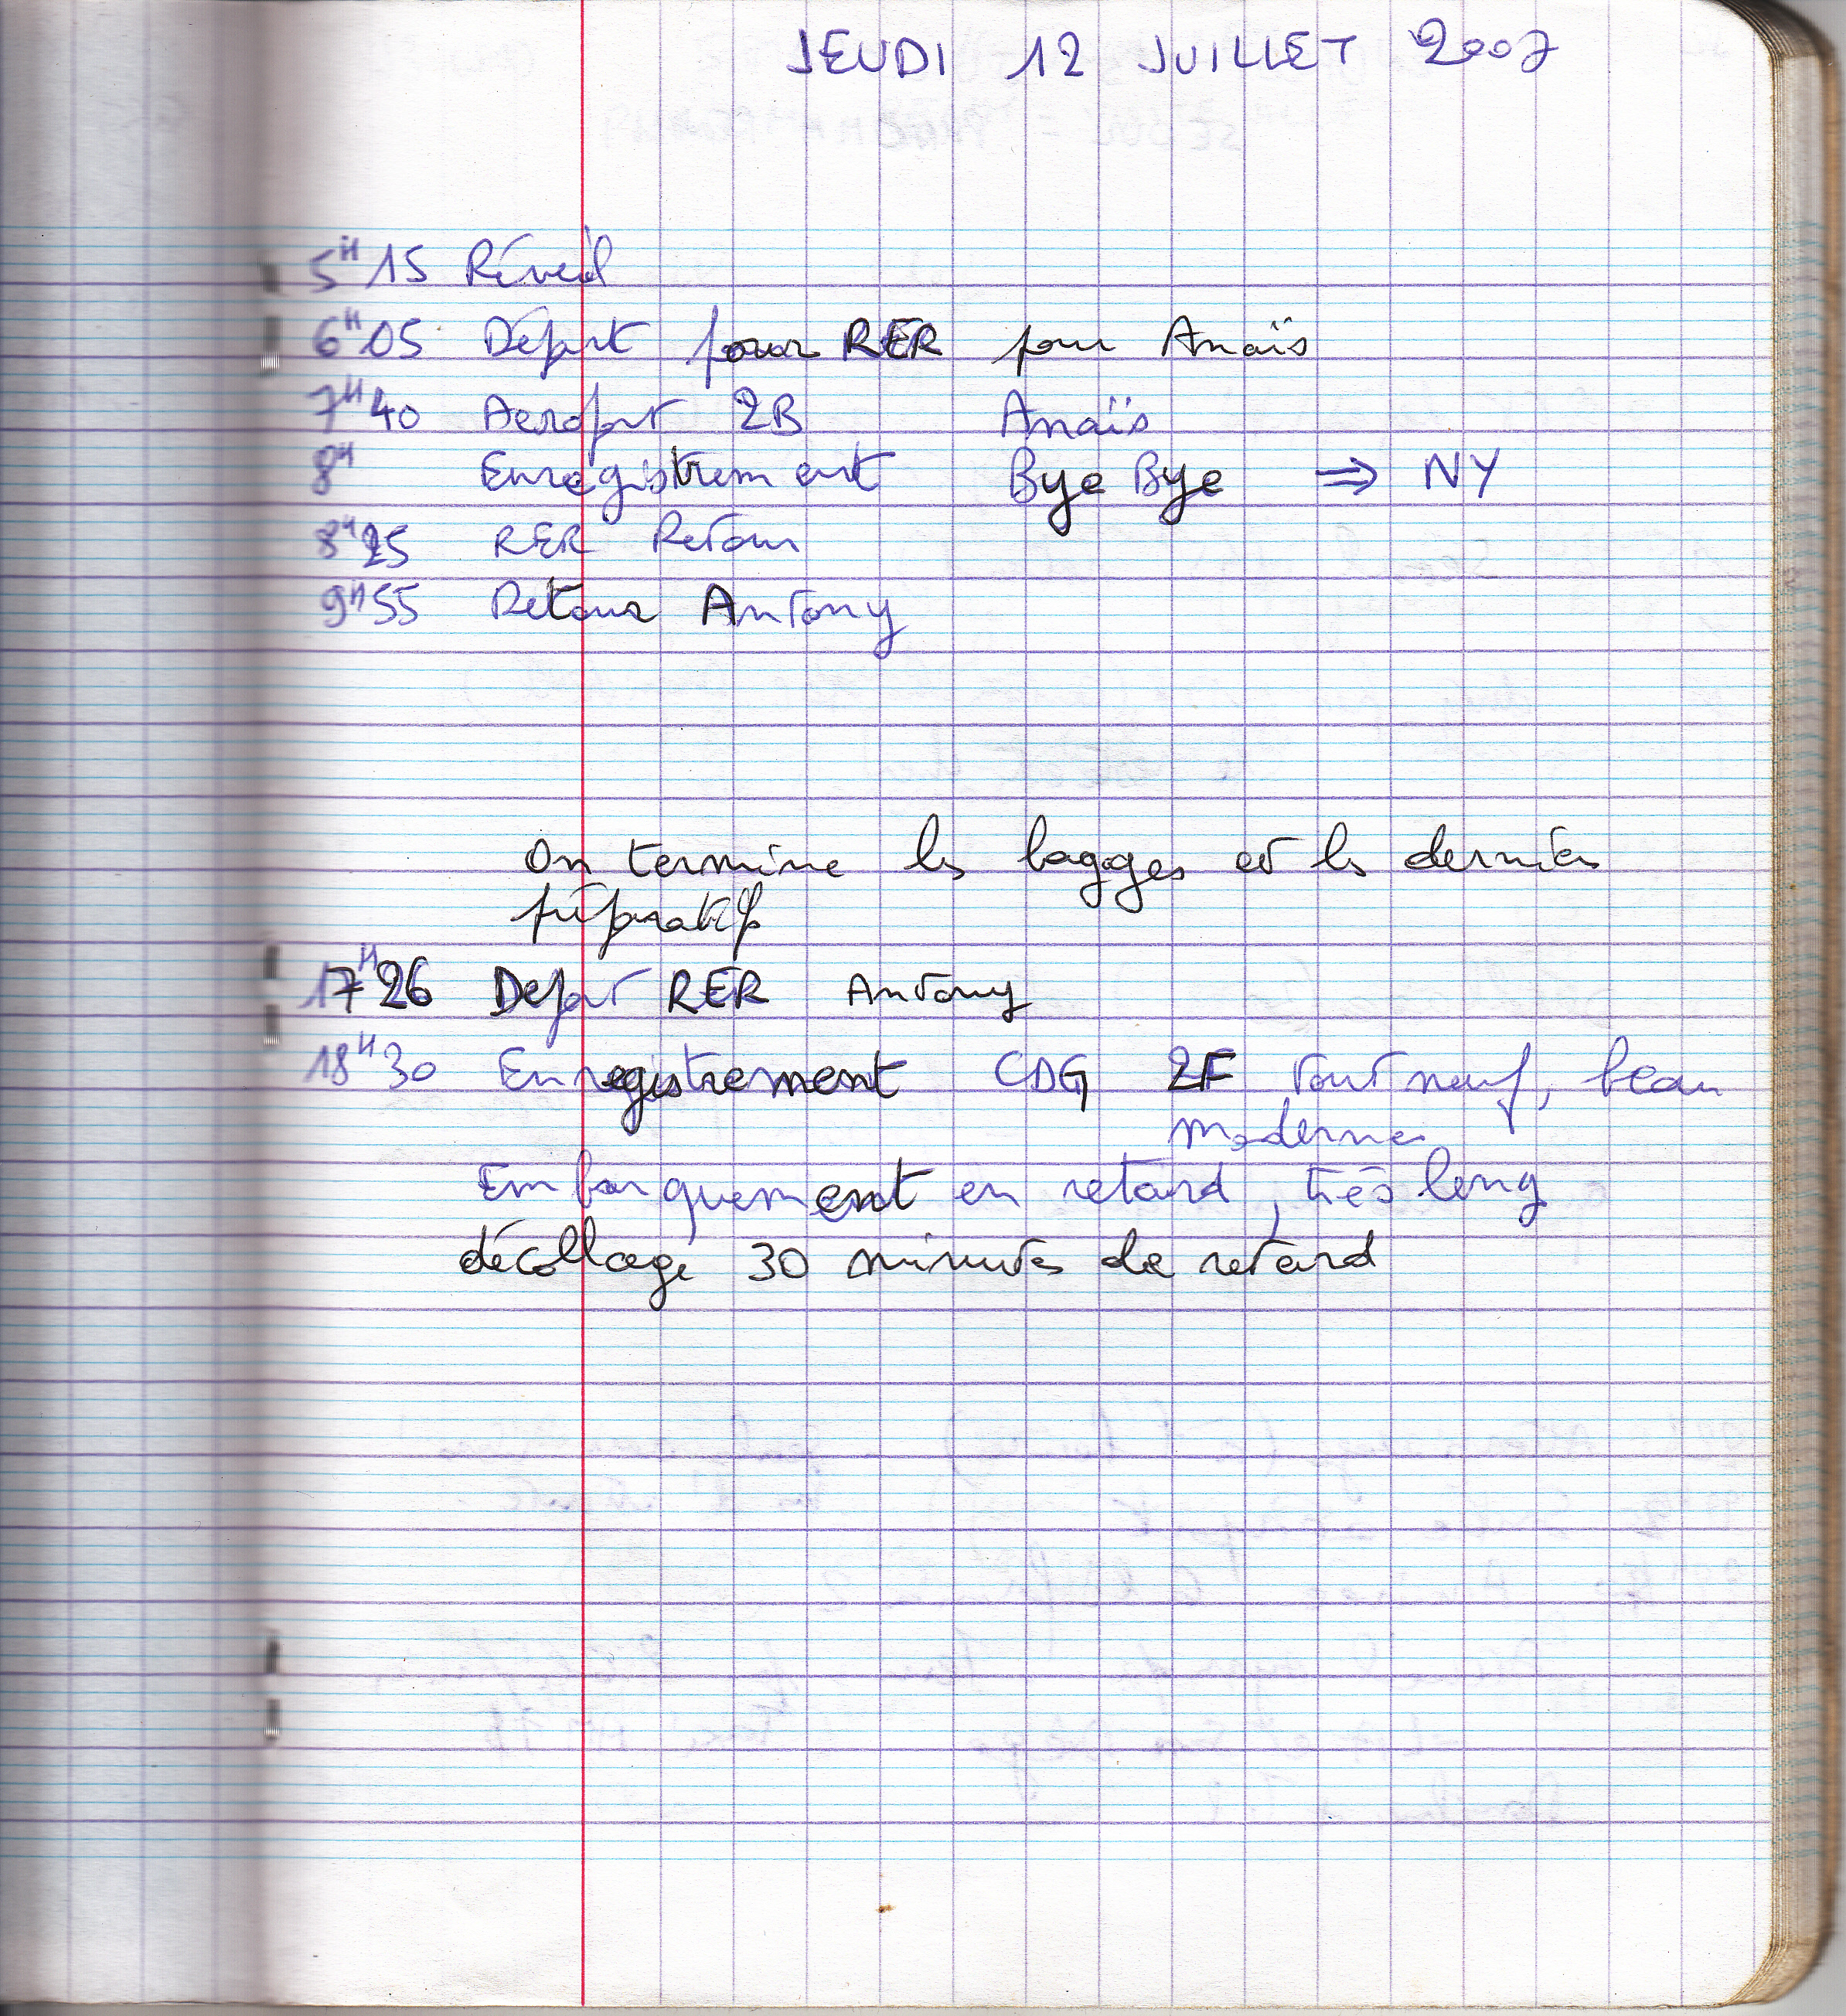 JEUDI 12 JUILLET 2007
5H15 Réveil
6H05 Départ pour RER pour Anaïs
7H40 Aeroport 2B Anaïs
8H Enregistrement Bye Bye ⇒ NY
8H25 RER Retour
9H55 Retour Antony
On termine les bagages et les derniers
préparatifs
17H26 Depart RER Antony
18H30 Enregistrement CDG 2F tout neuf, beau
moderne
Embarquement en retard, très long
décollage 30 minutes de retard